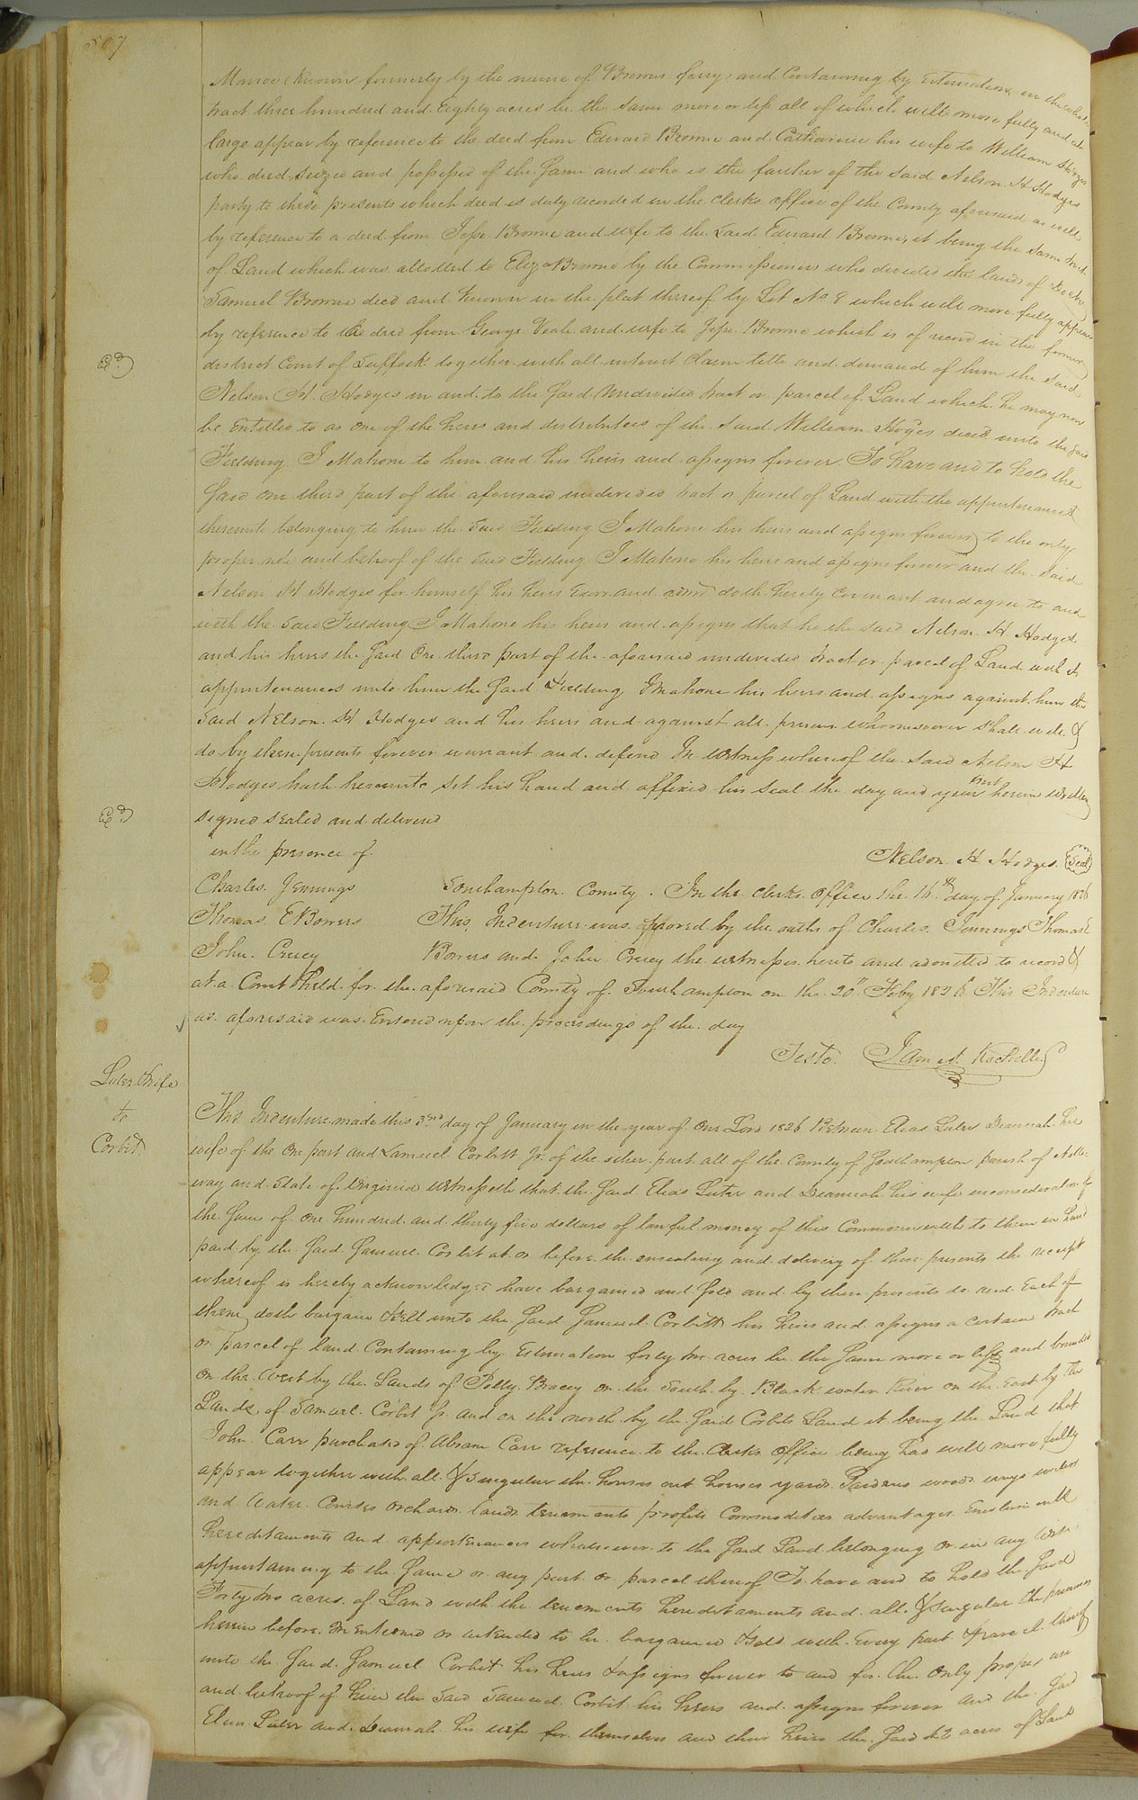 507
Monroe (known formerly by the name of Browns ferry) and Containing by Estimation in the whole
tract three hundred and Eighty acres be the same more or less all of which will more fully and at
large appear by reference to the deed from Edward Browne and Catharine his wife to William Hodges
who died seized and possessed of the same and who is the farther of the said Nelson H Hodges
party to these presents which deed is duly recorded in the clerks office of the County aforesaid as will
by reference to a deed from Jesse Browne and wife to the said Edward Browne, it being the same tract
of Land which was allotted to Eliza Browne by the Commissioners who devided the lands of
Samuel Browne decd and known in the plat thereof by Lot No 8 which will more fully appear
by reference to the deed from George Veale and wife to Jesse Browne which is of record in the former
district Court of Suffolk together with all interest claim title and demand of him the said
Nelson H. Hodges in and to the said undivided tract or parcel of Land which he may now
be Entitled to as one of the heirs and distributees of the said William Hodges decd unto the said
Fielding J Mahone to him and his heirs and assigns forever To have and to hold the
said one third part of the aforesaid undivided tract or parcel of Land with the appurtenances
thereunto belonging to him the said Fielding J Mahone his heirs and assigns forever to the only
proper use and behoof of the said Fielding J Mahone his heirs and assigns forever and the said
Nelson H Hodges for himself his heirs Exors and admrs doth hereby Covenant and agree to and
with the said Fielding J Mahone his heirs and assigns that he the said Nelson H Hodges
and his heirs the said One third part of the aforesaid undivided tract or parcel of Land with its
appurtenances unto him the said Fielding J Mahone his heirs and assigns against him the
said Nelson H Hodges and his heirs and against all persons whomsoever shall will &
do by these presents forever warrant and defend In Witness whereof the said Nelson H
Hodges hath hereunto set his hand and affixed his Seal the day and year first herein written
signed sealed and delivered
in the presence of
Nelson H Hodges. Seal
Charles Jennings
Thomas E Bowers
John Crecey
Southampton County. In the clerks office the 16th day of January 1826
This Indenture was proved by the oaths of Charles Jennings Thomas E
Bowers and John Crecey the witnesses hereto and admitted to record &
at a Court held for the aforesaid County of Southampton on the 20th Feby 1826 This Indenture
as aforesaid was Entered upon the proceedings of the day
Teste. James Rochelle
Luter & wife
to
Corbit
This Indenture made this 3rd day of January in the year of our Lord 1826 Between Elias Luter Diannah his
wife of the One part and Samuel Corbitt Jr of the other part all of the County of Southampton parish of Notto-
way and State of Virginia Witnesseth that the said Elias Luter and Diannah his wife in consideration of
the sum of One hundred and thirty five dollars of lawful money of this Commonwealth to them in hand
paid by the said Samuel Corbit at or before the ensealing and delivery of these presents the receipt
whereof is hereby acknowledged have bargained and sold and by these presents do and Each of
them doth bargain & sell unto the said Samuel Corbitt his heirs and assigns a certain tract
or parcel of land Containing by Estimation forty two acres be the same more or less and bounded
on the West by the Lands of Polly Bracy on the South by Black water River on the East by the
Lands of Samuel Corbit Jr and on the north by the said Corbits Land it being the Land that
John Carr purchased of Abram Carr reference to the Clerks office being had will more fully
appear together with all & singular the houses out houses yards Gardens woods ways waters
and Water Courses orchards lands tenements profits Commodities advantages Emoluments
hereditaments and appurtenances whatsoever to the said Land belonging or in any wise
appurtaining to the same or any part or parcel thereof To have and to hold the said
Forty two acres of Land with the tenements hereditaments and all & Singular the premises
herein before mentioned or intended to be bargained & sold with Every part & parcel thereof
unto the said Samuel Corbit his heirs & assigns forever to and for the Only proper use
and behoof of him the said Samuel Corbit his heirs and assigns forever and the said
Elias Luter and Diannah his wife for themselves and their heirs the said 42 acres of Land